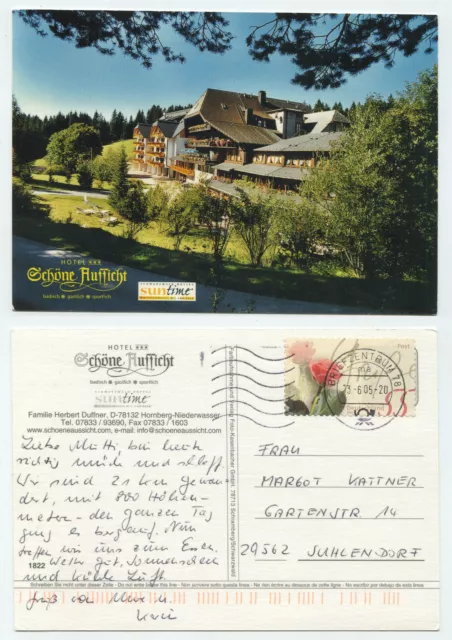 HOTEL ★★★
Schöne Aussicht
badisch ✽ gastlich ✽ sportlich
SCHWARZWALD-HOTEL
suntime
HOTEL ★★★
Schöne Aussicht
badisch ✽ gastlich ✽ sportlich
SCHWARZWALD-HOTEL
suntime
Familie Herbert Duffner, D-78132 Hornberg-Niederwasser
Tel. 07833 / 93690, Fax 07833 / 1603
www.schoeneaussicht.com, e-mail: info@schoeneaussicht.com
Liebe Mutti, bin heute
richtig müde und schlapp.
Wir sind 21 km gewan-
dert, mit 800 Höhen-
metern - den ganzen Tag
ging es bergauf. Nun
treffen wir uns zum Essen.
Wetter gut, Sonnenschein
und kühle Luft.
Gruß von
1822
Schreiben Sie nicht unter dieser Linie - Do not write below this line - Ne rien écrire au dessous de cette ligne
BRIEFZENTRUM 78
-6.05-20
Post
FRAU
MARGOT KATTNER
GARTENSTR 14
29562 SUHLENDORF